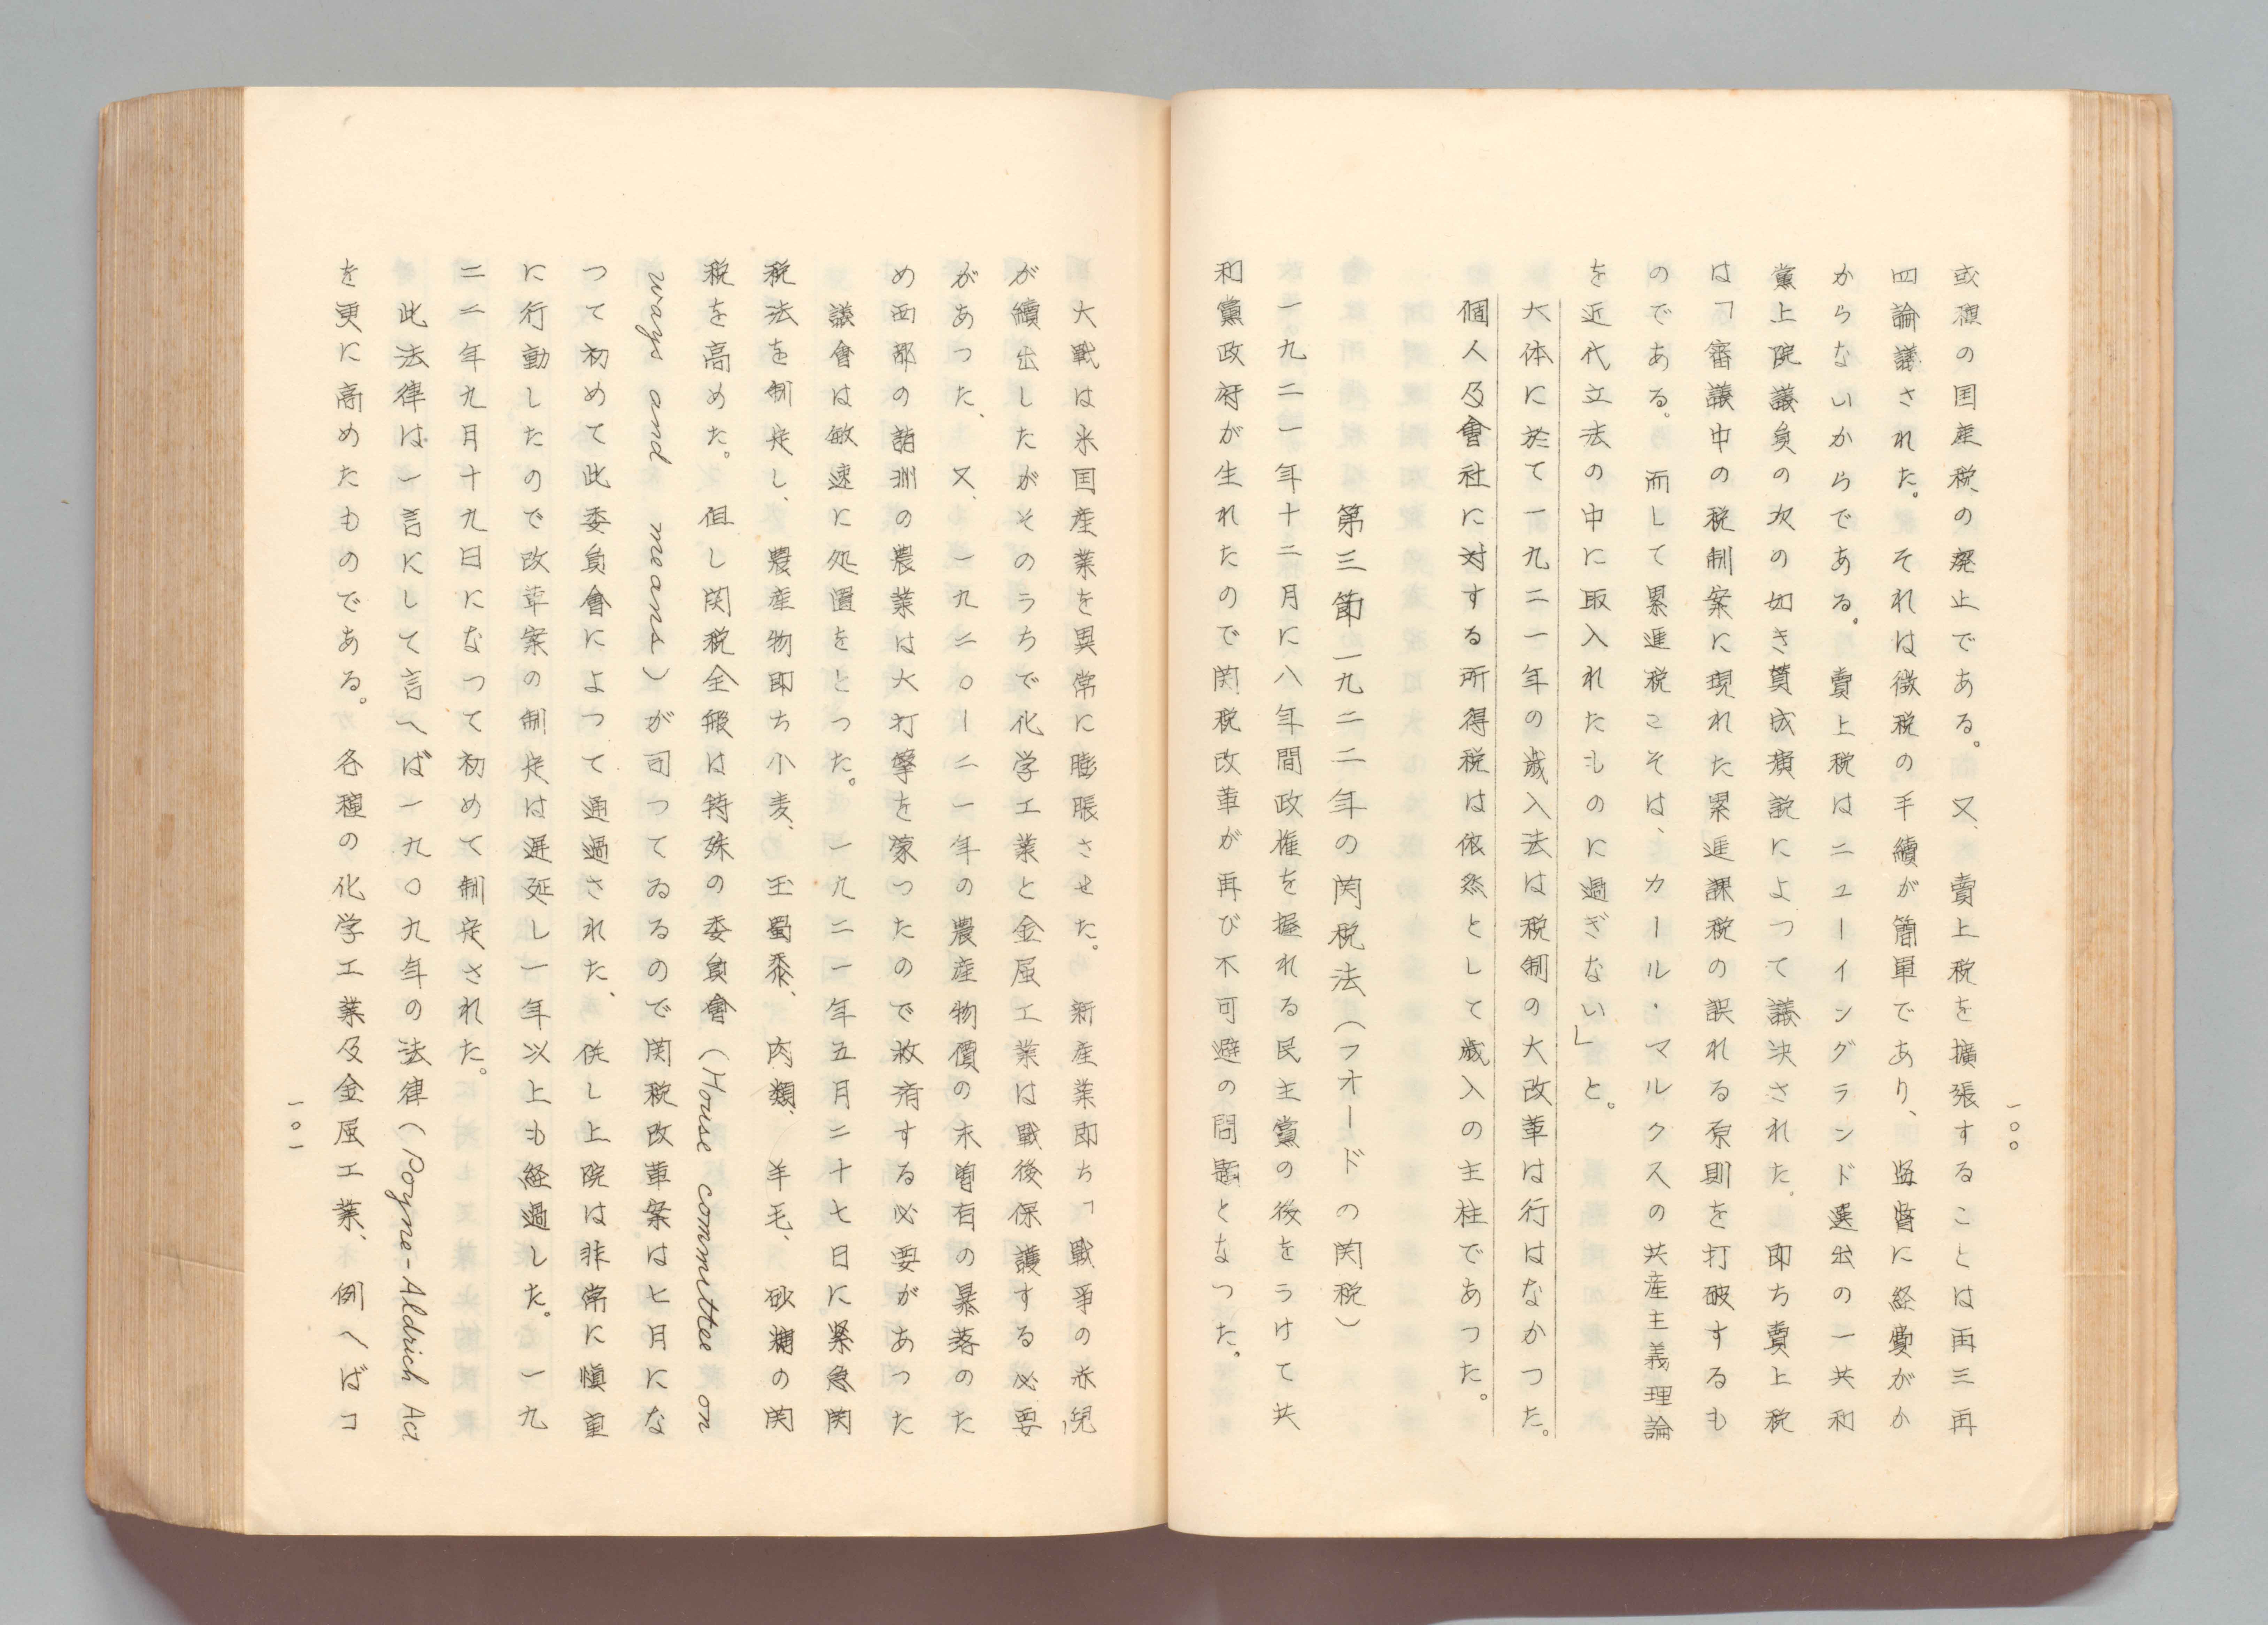 一〇〇
或種の国産税の廃止である。又、賣上税を擴張することは再三再
四論議された。それは徴税の手續が簡單であり、監督に経費がか
からないからである。賣上税はニューイングランド選出の一共和
黨上院議員の次の如き賛成演説によつて議決された。即ち賣上税
は「審議中の税制案に現れた累進課税の誤れる原則を打破するも
のである。而して累進税こそは、カール・マルクスの共産主義理論
を近代立法の中に取入れたものに過ぎない」と。
大体に於て一九二一年の歳入法は税制の大改革は行はなかつた。
個人及會社に対する所得税は依然として歳入の主柱であつた。
第三節 一九二二年の関税法(フオードの関税)
一九二一年十二月に八年間政権を握れる民主黨の後をうけて共
和黨政府が生れたので関税改革が再び不可避の問題となつた。
大戰は米国産業を異常に膨脹させた。新産業即ち「戰爭の赤兒」
が續出したがそのうちで化学工業と金屈工業は戰後保護する必要
があつた、又、一九二〇ー二一年の農産物價の未曽有の暴落のた
め西部の諸洲の農業は大打撃を蒙つたので救済する必要があつた
議會は敏速に処置をとつた。一九二一年五月二十七日に緊急関
税法を制定し、農産物即ち小麦、玉蜀黍、肉類、羊毛、砂糖の関
税を高めた。但し関税全般は特殊の委員會(House committee on
ways and means)が司つてゐるので関税改革案は七月にな
つて初めて此委員會によつて通過された、併し上院は非常に愼重
に行動したので改革案の制定は遅延し一年以上も経過した。一九
二二年九月十九日になつて初めて制定された。
此法律は一言にして言へば一九〇九年の法律(Poyne-Aldrich Act
を更に高めたものである。各種の化学工業及金屈工業、例へばコ
一〇一